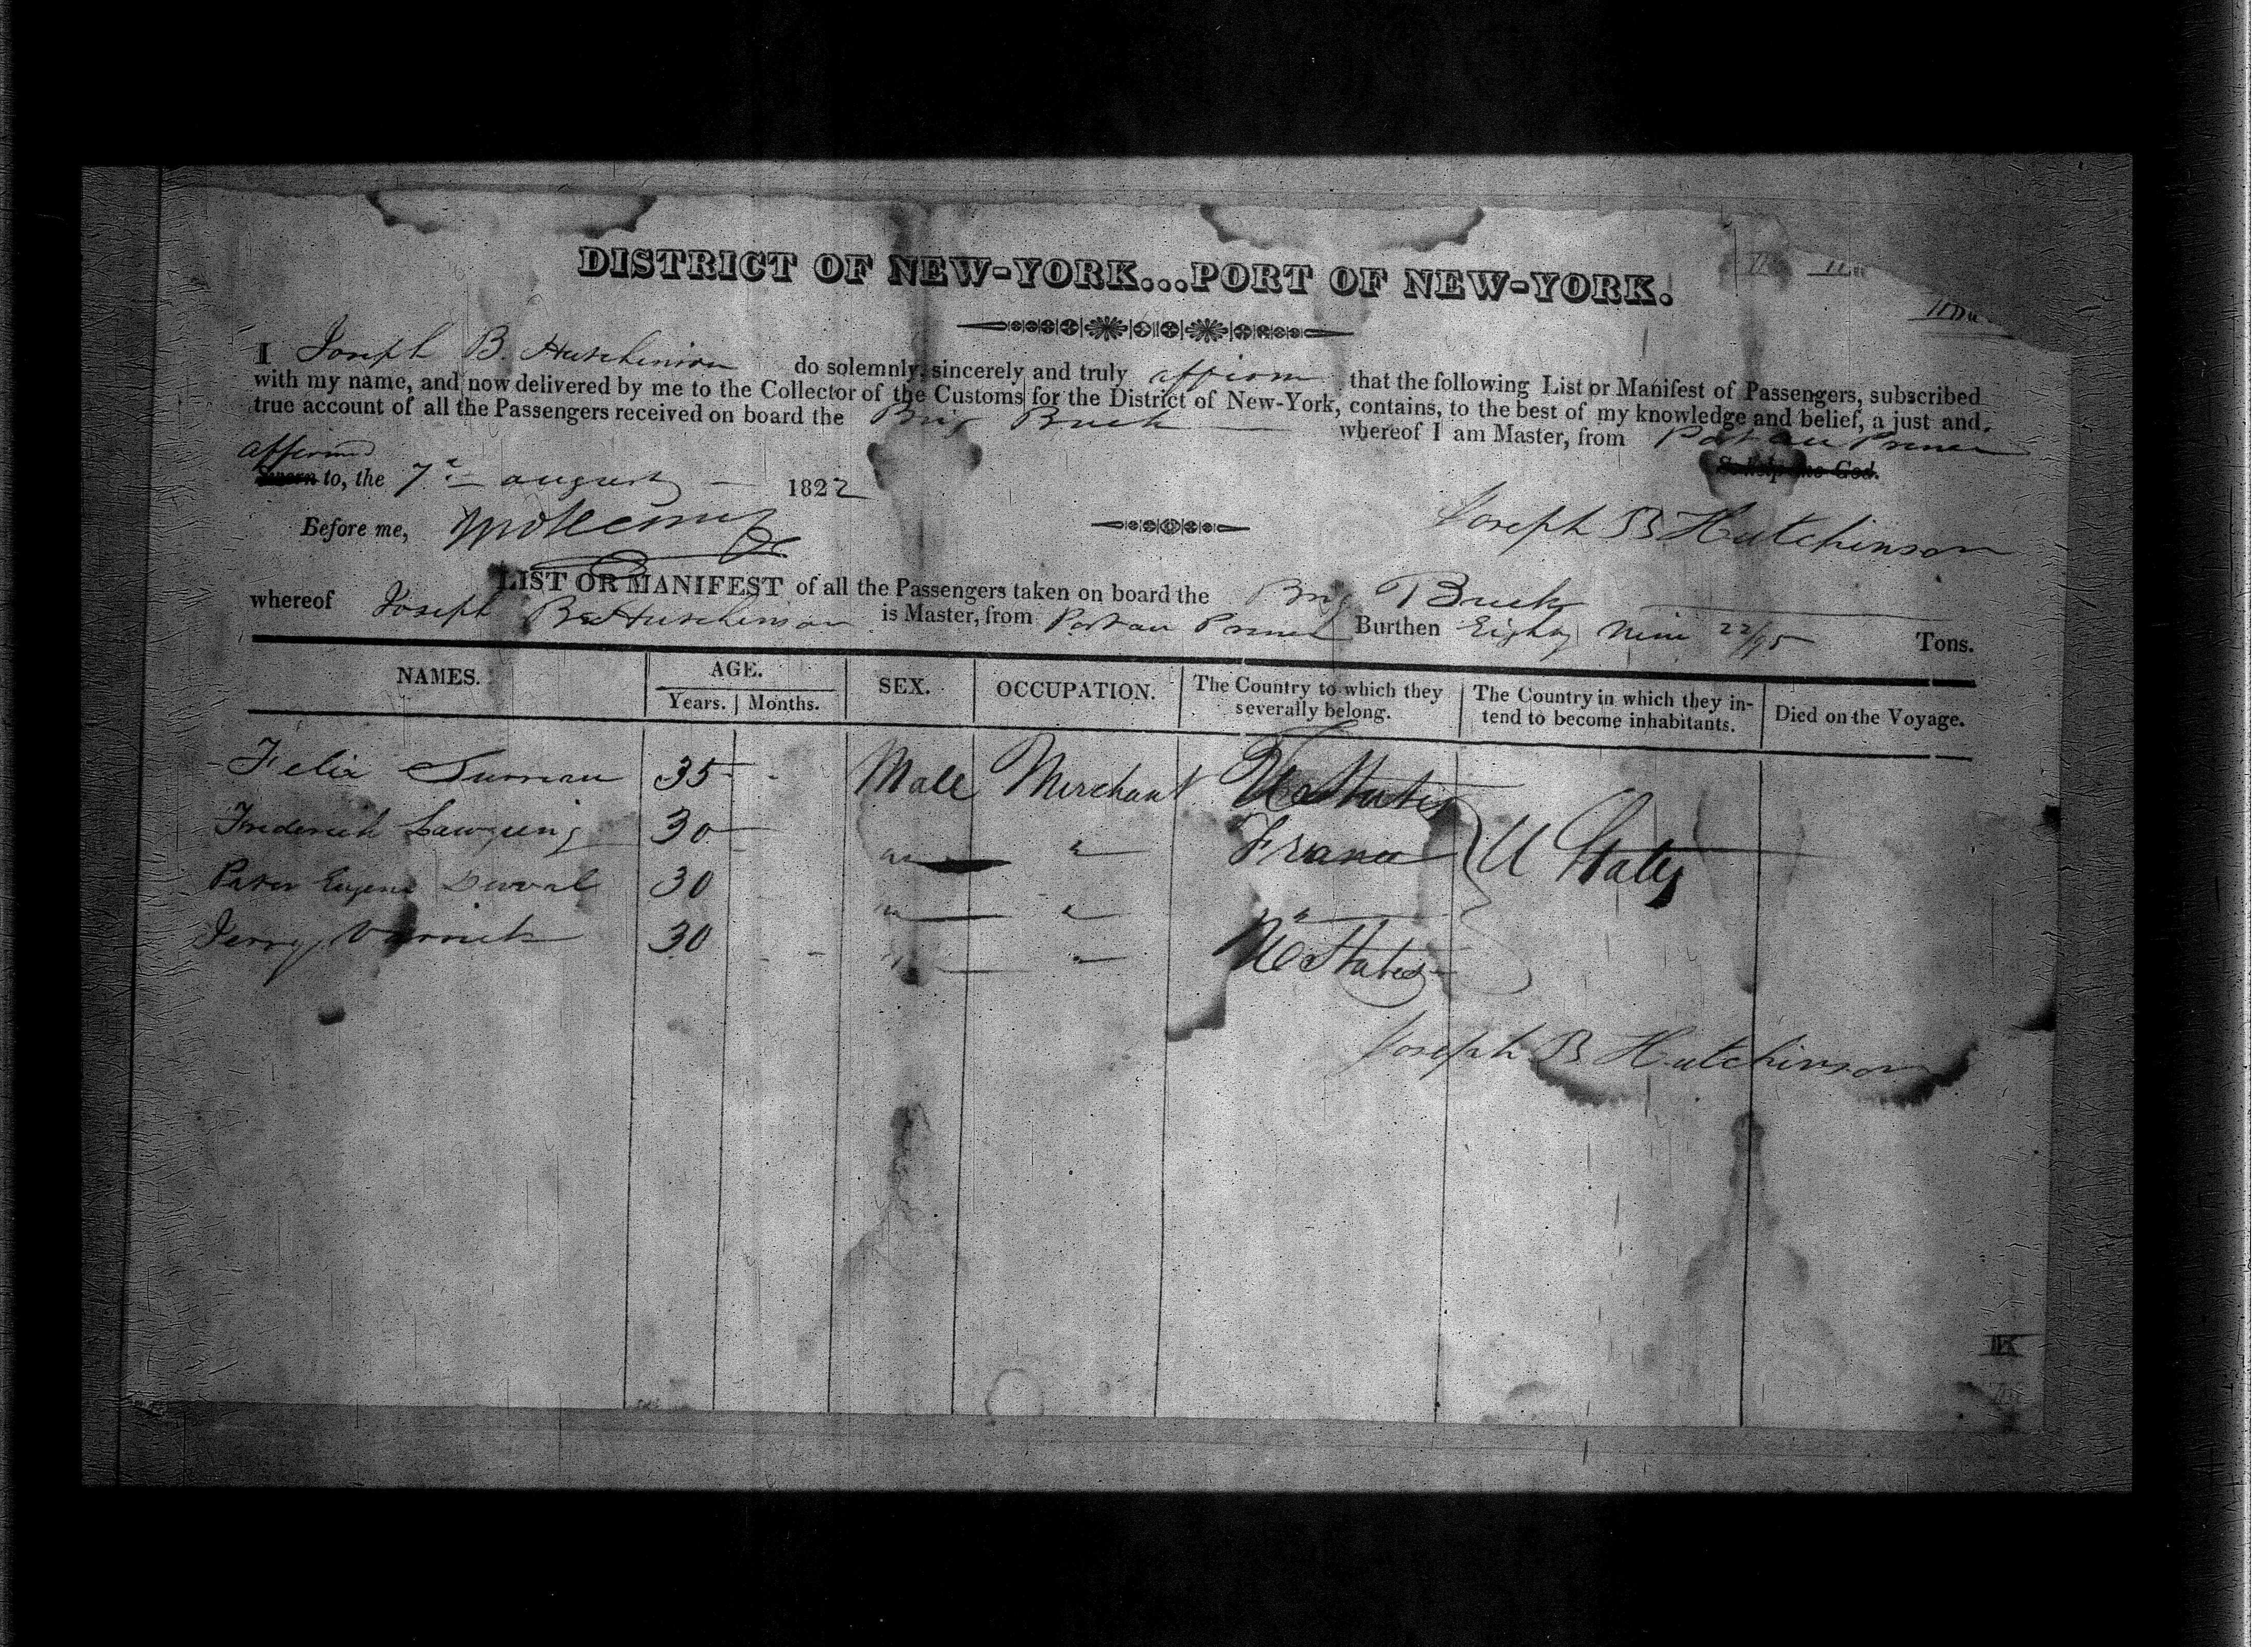 DISTRICT OF NEW-YORK...PORT OF NEW-YORK.
I Joseph B. Hutchinson do solemnly, sincerely and truly affirm that the following List or Manifest of Passengers, subscribed
with my name, and now delivered by me to the Collector of the Customs for the District of New-York, contains, to the best of my knowledge and belief, a just and
true account of all the Passengers received on board the Brig Buck whereof I am Master, from Port au Prince
So help me God.
affirmed
Sworn to, the 7th august 1822
Before me,
Joseph B Hutchinson
LIST OR MANIFEST of all the Passengers taken on board the Brig Buck
whereof Joseph B Hutchinson is Master, from Port au Prince Burthen Eighty Nine 22/95 Tons.
NAMES. AGE. Years. Months. SEX. OCCUPATION. The Country to which they severally belong. The Country in which they intend to become inhabitants. Died on the Voyage.
Felix 35 Male Merchant U States
Frederick 30 " " France U States
Eugene Duval 30 " " "
Jerry Varrick 30 " " U States
Joseph B Hutchinson